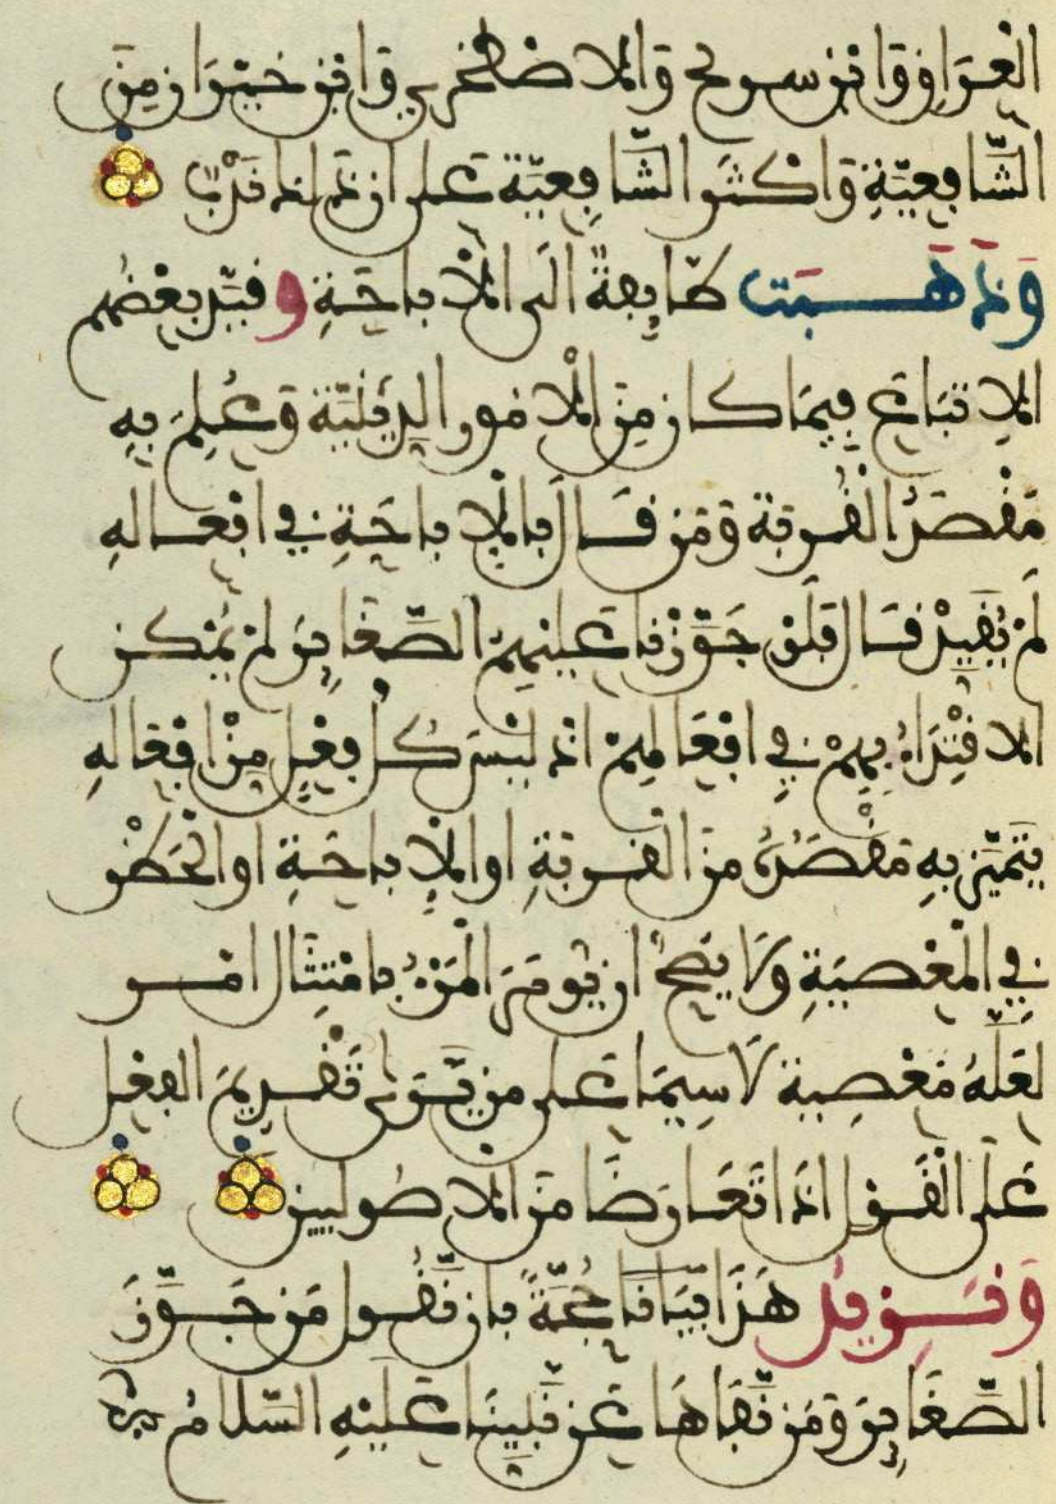 العراق وابن سريج والاصطخري وابن خيران من
الشافعية واكثر الشافعية على ان ذلك ندب
وذهبت طائفة الى الاباحة وقيد بعضهم
الاتباع فيما كان من الامور الدينية وعلم به
مقصد القربة ومن قال بالاباحة في افعاله
لم يقيد قال فلو جوزنا عليهم الصغائر لم يمكن
الاقتداء بهم في افعالهم اذ ليس كل فعل من افعاله
يتميز به مقصده من القربة او الاباحة او الحظر
في المعصية ولا يصح ان يومر المرء بامتثال امر
لعله معصية لا سيما على من يرى تقديم الفعل
على القول اذا تعارضا من الاصوليين
ونزيد هذا بيانا حجة بان نقول من جوز
الصغائر ومن نفاها عن نبينا عليه السلام